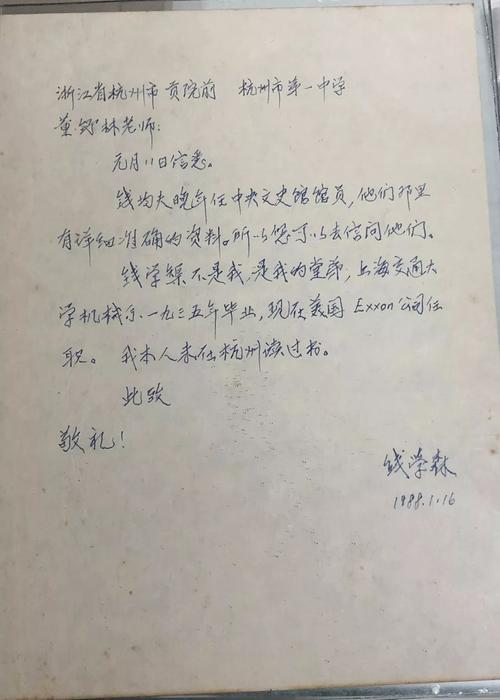 浙江省杭州市贡院前 杭州市第一中学
董 林老师:
元月11日信悉。
钱均夫晚年任中央文史馆馆员,他们那里
有详细准确的资料。所以您可以去信问他们。
钱学榘不是我,是我的堂弟,上海交通大
学机械系一九三五年毕业,现在美国Exxon公司任
职。 我本人未在杭州读过书。
此致
敬礼!
钱学森
1988.1.16